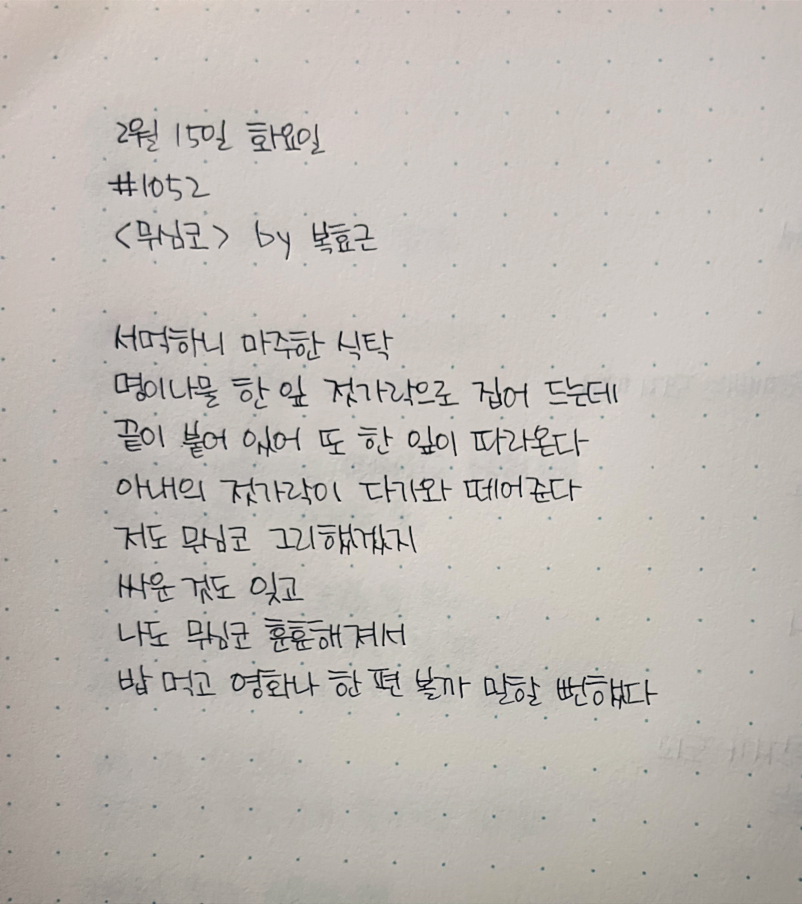 2월 15일 화요일
#1052
<무심코> by 복효근
서먹하니 마주한 식탁
명이나물 한 잎 젓가락으로 집어 드는데
끝이 붙어 있어 또 한 잎이 따라온다
아내의 젓가락이 다가와 떼어준다
저도 무심코 그리했겠지
싸운 것도 잊고
나도 무심코 훈훈해져서
밥 먹고 영화나 한 편 볼까 말할 뻔했다